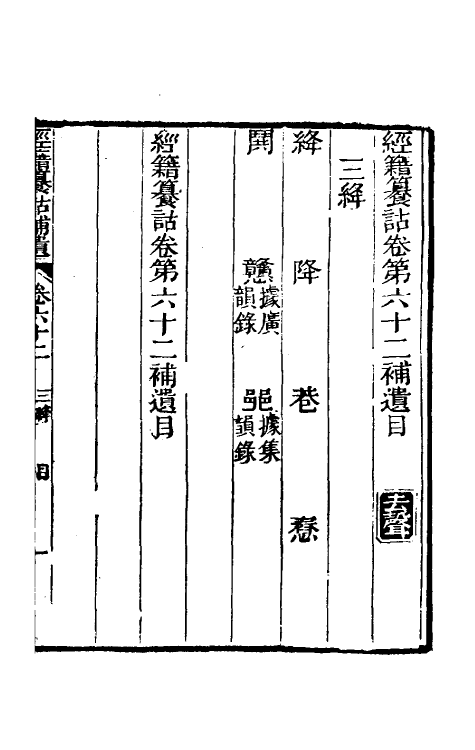 經籍籑詁卷第六十二補遺目 去聲
三絳
絳 降 巷 惷
鬨 戇據廣韻錄 𨛜據集韻錄
經籍籑詁卷第六十二補遺目
經籍籑詁補遺 卷六十二 三絳 目 一